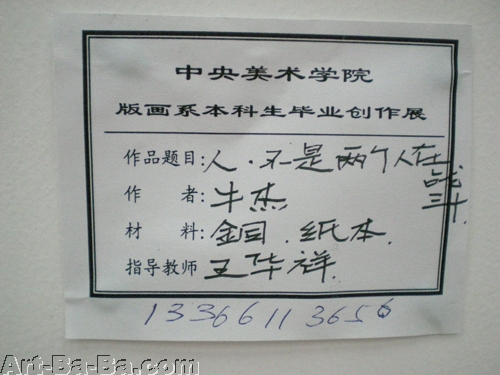 中央美术学院
版画系本科生毕业创作展
作品题目:人·不是两个人在战斗
作 者:牛杰
材 料:铜目.纸本.
指导教师 王华祥
13366113656
Art-Ba-Ba.com